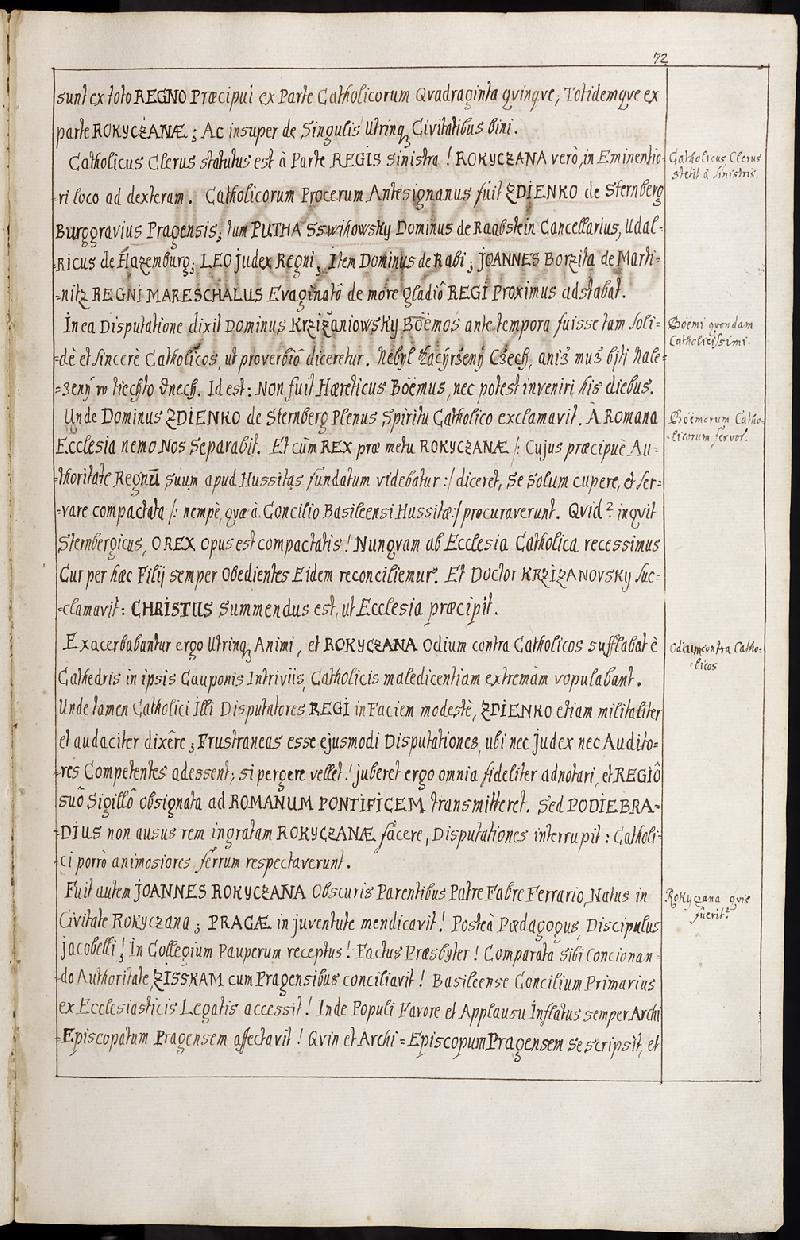 72
sunt ex toto REGNO Præcipui ex Parte Catholicorum Qvadraginta qvinqve, Totidemqve ex
parte ROKYCZANÆ; Ac insuper de Singulis Utrinq3 Civitatibus bini.
Catholicus Clerus statutus est à Parte REGIS sinistra! ROKYCZANA verò, in Eminentio-
ri loco ad dexteram. Catholicorum Procerum Antesignanus fuit ZDIENKO de Sternberg
Burggravius Pragensis; tum PUTHA Sswihowsky Dominus de Raabstein Cancellarius, Udal-
Ricus de Hazemburg; LEO Judex Regni, Item Dominus de Rabi; JOANNES Borzita de Marti-
-nitz REGNI MARESCHALUS Evaginatô de more gladiô REGI Proximus adstabat.
Catholicus Clerus
stetit à sinistris.
In ea Disputatione dixit Dominus Krziżaniowsky Boëmos ante tempora fuisse tam soli-
dè et sincerè Catholicos, ut proverbiô diceretur.
Id est: Non fuit Hæreticus Boëmus, nec potest inveniri his diebus.
Boëmi qvondam
Catholicissimi.
Unde Dominus ZDIENKO de Sternberg Plenus Spiritu Catholico exclamavit. À Romana
Ecclesia nemo Nos Separabit. Et cùm REX præ metu ROKYCZANÆ /: Cujus præcipuè Au-
-thoritate Regnū suum apud Hussitas fundatum videbatur :/ diceret, Se Solum cupere, et ser-
-vare compactata /: nempè, qvæ à Concilio Basileensi Hussitæ :/ procuraverunt. Qvid? inqvit
Sternbergicus, O REX opus est compactatis! Nunqvam ab Ecclesia Catholica recessimus
Cur per hæc Filij semper Obedientes Eidem reconciliemur? Et Doctor KRZIZANOVSKY suc-
-clamavit: CHRISTUS Summendus est, ut Ecclesia præcipit.
Boëmorum Catho-
-licorum fervor.
Exacerbabantur ergo Utrinq3 Animi, et ROKYCZANA Odium contra Catholicos sufflabat è
Cathedris in ipsis Cauponis Intriviis, Catholicis maledicentiam extremam vapulabant.
Unde tamen Catholici Illi Disputatores REGI in Faciem modestè, ZDIENKO etiam militaliter
et audaciter dixêre; Frustraneas esse ejusmodi Disputationes, ubi nec Judex nec Audito-
res Competentes adessent; si pergere vellet! juberet ergo omnia fideliter adnotari, et REGIÔ
suô Sigillô obsignata ad ROMANUM PONTIFICEM transmitteret. Sed PODIEBRA-
DIUS non ausus rem ingratam ROKYCZANÆ facere, Disputationes interrupit: Catholi-
ci porrò animosiores, ferrum respectaverunt.
Odium contra Catho-
-licos
Fuit autem JOANNES ROKYCZANA Obscuris Parentibus Patre Fabre Ferrario, Natus in
Civitate Rokyczana; PRAGÆ in juventute mendicavit! Posteà Pædagogus, Discipulus
Jacobelli! In Collegium Pauperum receptus! Factus Præsbyter! Comparata sibi Concionan-
do Authoritate, ZISSKAM cum Pragensibus conciliavit! Basileense Concilium Primarius
ex Ecclesiasticis Legatis accessit! Inde Populi Favore et Applausu Inflatus semper Archi
-Episcopatum Pragensem affectavit! Qvin et Archi=Episcopum Pragensem se scripsit, et
Rokyzana qvis
fuerit?